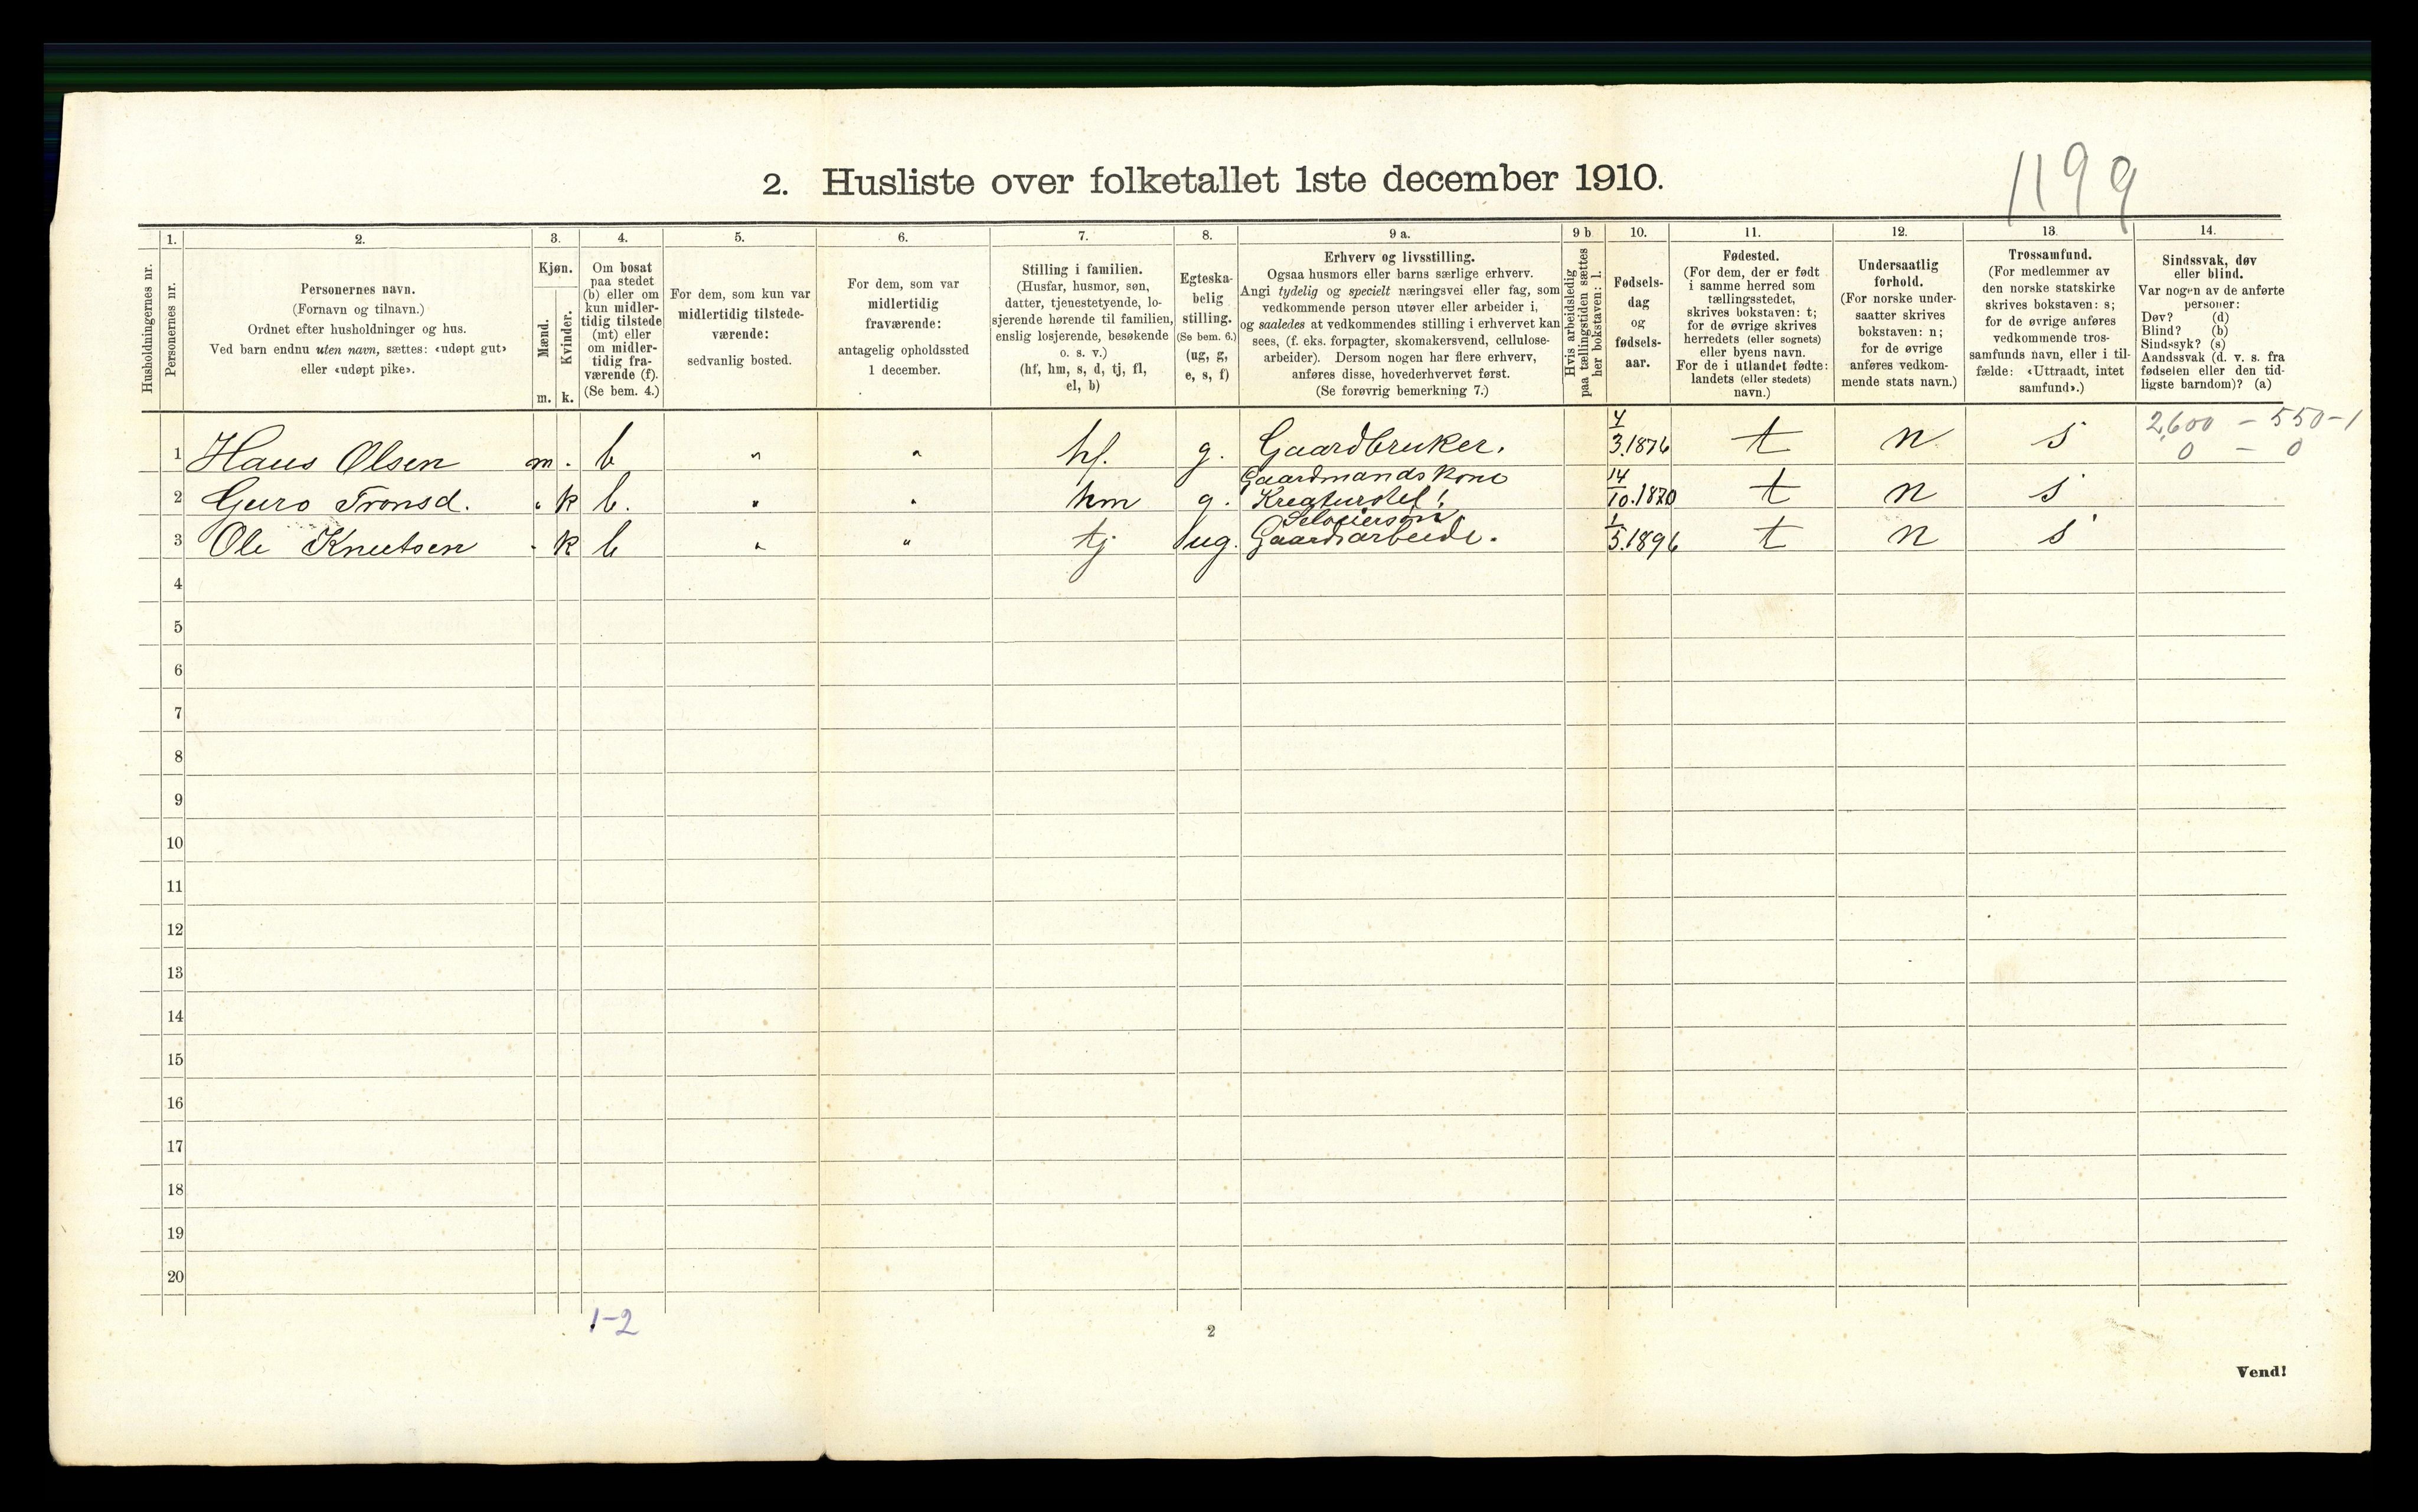 1199
2. Husliste over folketallet 1ste december 1910.
Husholdningernes nr.
1.
Personernes nr.
2.
Personernes navn.
(Fornavn og tilnavn.)
Ordnet efter husholdninger og hus.
Ved barn endnu uten navn, sættes: «udøpt gut»
eller «udøpt pike».
3.
Kjøn.
Mænd.
Kvinder.
m. k.
4.
Om bosat
paa stedet
(b) eller om
kun midler-
tidig tilstede
(mt) eller
om midler-
tidig fra-
værende (f).
(Se bem. 4.)
5.
For dem, som kun var
midlertidig tilstede-
værende:
sedvanlig bosted.
6.
For dem, som var
midlertidig
fraværende:
antagelig opholdssted
1 december.
7.
Stilling i familien.
(Husfar, husmor, søn,
datter, tjenestetyende, lo-
sjerende hørende til familien,
enslig losjerende, besøkende
o. s. v.)
(hf, hm, s, d, tj, fl,
el, b)
8.
Egteska-
belig
stilling.
(Se bem. 6.)
(ug, g,
e, s, f)
9 a.
Erhverv og livsstilling.
Ogsaa husmors eller barns særlige erhverv.
Angi tydelig og specielt næringsvei eller fag, som
vedkommende person utøver eller arbeider i,
og saaledes at vedkommendes stilling i erhvervet kan
sees, (f. eks. forpagter, skomakersvend, cellulose-
arbeider). Dersom nogen har flere erhverv,
anføres disse, hovederhvervet først.
(Se forøvrig bemerkning 7.)
9 b
Hvis arbeidsledig
paa tællingstiden sættes
her bokstaven: l.
10.
Fødsels-
dag
og
fødsels-
aar.
11.
Fødested.
(For dem, der er født
i samme herred som
tællingsstedet,
skrives bokstaven: t;
for de øvrige skrives
herredets (eller sognets)
eller byens navn.
For de i utlandet fødte:
landets (eller stedets)
navn.)
12.
Undersaatlig
forhold.
(For norske under-
saatter skrives
bokstaven: n;
for de øvrige
anføres vedkom-
mende stats navn.)
13.
Trossamfund.
(For medlemmer av
den norske statskirke
skrives bokstaven: s;
for de øvrige anføres
vedkommende tros-
samfunds navn, eller i til-
fælde: «Uttraadt, intet
samfund».)
14.
Sindssvak, døv
eller blind.
Var nogen av de anførte
personer:
Døv? (d)
Blind? (b)
Sindssyk? (s)
Aandssvak (d. v. s. fra
fødselen eller den tid-
ligste barndom)? (a)
1 Hans Olsen m. b " " hf. g. Gaardbruker. 4/3.1876 t n s 2,600 - 550-1
0 - 0
Gaardmandskone
2 Guro Tronsd. " k b. " " hm g. Kreaturstel! 14/10.1870 t n s
3 Ole Knutsen - k b " " tj ug. Gaardsarbeide. 1/5.1896 t n s
4
5
6
7
8
9
10
11
12
13
14
15
16
17
18
19
20
1-2
2
Vend!